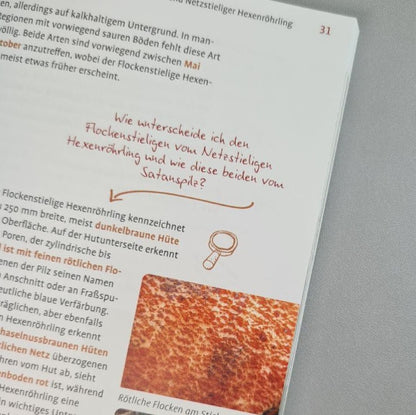 nd Netzstieliger Hexenröhrling
31
en, allerdings auf kalkhaltigem Untergrund. In man-
Regionen mit vorwiegend sauren Böden fehlt diese Art
völlig. Beide Arten sind vorwiegend zwischen Mai
tober anzutreffen, wobei der Flockenstielige Hexen-
meist etwas früher erscheint.
Wie unterscheide ich den
Flockenstieligen vom Netzstieligen
Hexenröhrling und wie diese beiden vom
Satanspilz?
Flockenstielige Hexenröhrling kennzeichnet
u 250 mm breite, meist dunkelbraune Hüte
Oberfläche. Auf der Hutunterseite erkennt
Poren, der zylindrische bis
l ist mit feinen rötlichen Flo-
enen der Pilz seinen Namen
Anschnitt oder an Fraßspu-
eutliche blaue Verfärbung.
räglichen, aber ebenfalls
n Hexenröhrling erkennt
haselnussbraunen Hüten
rlichen Netz überzogenen
hren vom Hut ab, sieht
enboden rot ist, während
Hexenröhrling eine
n wichtiges Unter-
Rötliche Flocken am Stiel